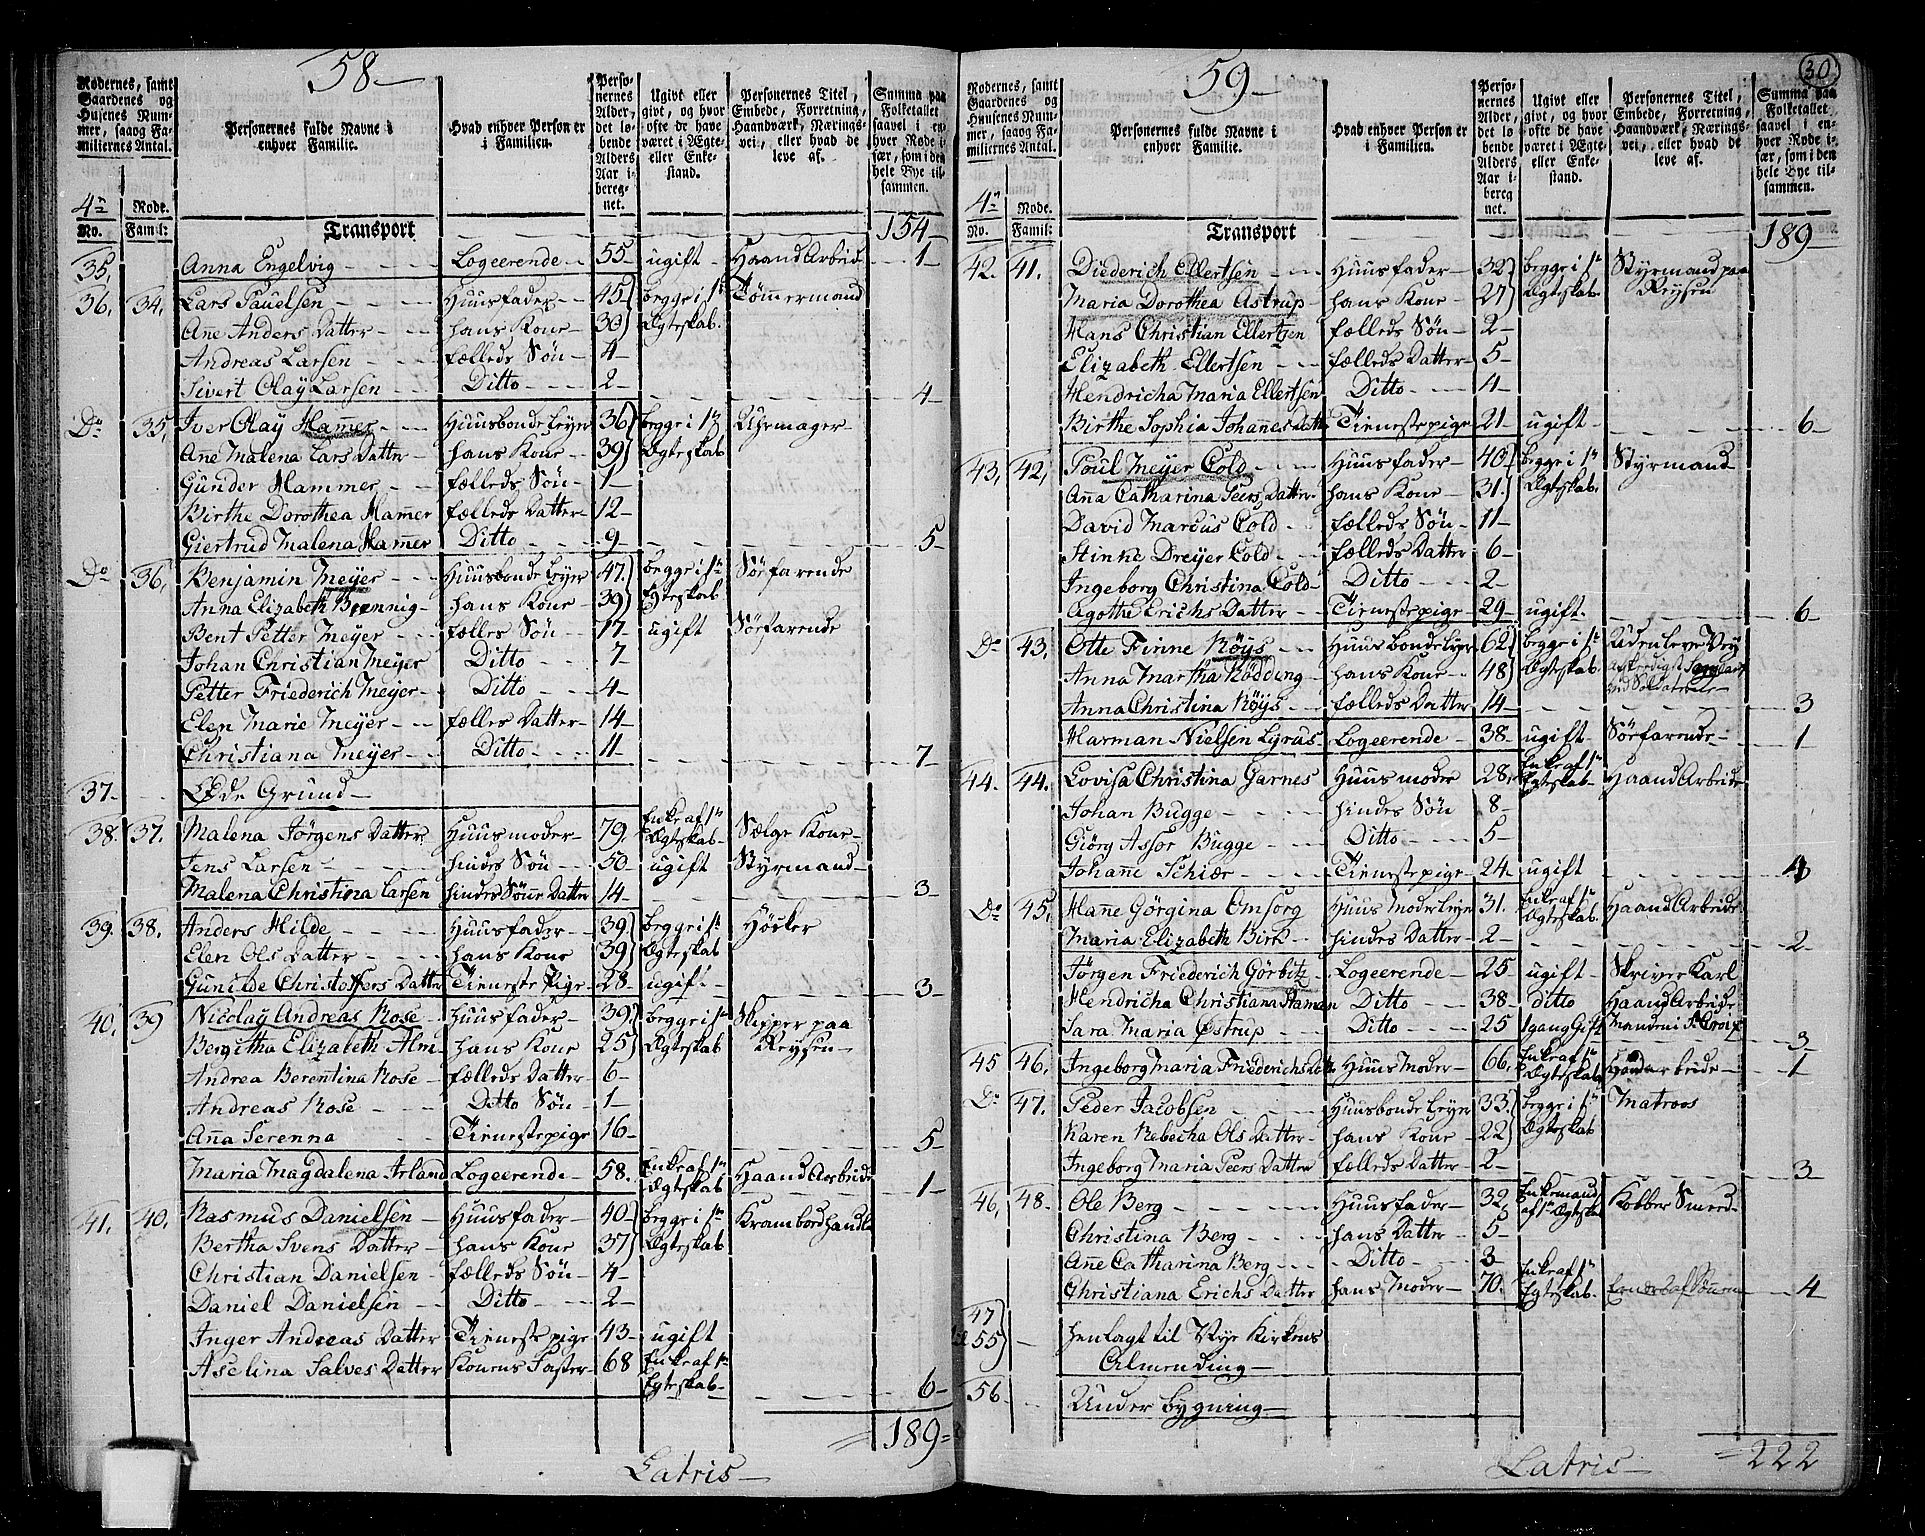 58
Rodernes, samt Gaardenes og Husenes Nummer, saavog Familiernes Antal.
Personernes fulde Navne i enhver Familie.
Hvad enhver Person er i Familien.
Personernes Alder, det løbende Alders Aar iberegnet.
Ugivt eller givt, og hvor ofte de have været i Ægte- eller Enkestand.
Personernes Titel, Embede, Forretning, Haandværk, Næringsvei, eller hvad de leve af.
Summa paa Folketallet saavel i enhver Rode især, som i den hele Bye tilsammen.
4de Rode.
No. Famil:
Transport 154
35, Anna Engelvig Logeerende 55 ugift Haand Arbeid 1
36, 34, Lars Pauelsen Huusfader 45 begge i 1te Tømmermand
Ane Anders Datter hans Kone 30 Ægteskab.
Andreas Larsen fælleds Søn 4
Sivert Olay Larsen Ditto 2 4
Do 35, Iver Olay Hamer Huusbonde Leyer 36 begge i 1te Uhrmager
Ane Malena Lars Datter hans Kone 39 Ægteskab
Gunder Hammer fælleds Søn 1
Birthe Dorothea Hamer fælleds Datter 12
Giertrud Malena Hamer Ditto 9 5
Do 36, Benjamin Meyer Huusbonde Leyer 47 begge i 1te Søefarende
Anna Elizabeth Bremnig hans Kone 39 Egteskab
Bent Petter Meyer fælles Søn 17 ugift Søefarende
Johan Christian Meyer Ditto 7
Petter Friederich Meyer Ditto 4
Elen Marie Meyer fælles Datter 14
Christiana Meyer Ditto 11 7
37 Øde Grund
38. 37. Malena Jørgens Datter Huusmoder 79. Enke af 1te Ægteskab Sælge Kone
Jens Larsen hindes Søn 50 ugift Styrmand
Malena Christina Larsen hindes Sønne Datter 14 3
39. 38. Anders Hilde Huusfader 39 begge i 1te Høcker
Elen Ols Datter hans Kone 39 Ægteskab
Gunilde Christoffers Datter Tieneste Pige 28 ugift 3
40, 39 Nicolay Andreas Rose Huusfader 39 begge i 1te Skipper paa
Bergitha Elizabeth Alm hans Kone 25 Ægteskab Reysen
Andrea Berentina Rose fælleds Datter 6
Andreas Rose Ditto Søn 1
Ana Serenna Tienestepige 16 5
Maria Magdalena Irland Logeerende 58. Enke af 1te Ægteskab Haand Arbeide 1
41. 40. Rasmus Danielsen Huusfader 40 begge i 1te Krambordhandle
Bertha Svens Datter hans Kone 37 Ægteskab
Christian Danielsen fælleds Søn 4
Daniel Danielsen Ditto 2
Inger Andreas Datter Tieneste pige 43 ugift
Aselina Salves Datter Konens Faster 68 Enke af 1te
Egteskab 6
189
Latris
59
30
Rodernes, samt Gaardenes og Husenes Nummer, saavog Familiernes Antal.
Personernes fulde Navne i enhver Familie.
Hvad enhver Person er i Familien.
Personernes Alder, det løbende Alders Aar iberegnet.
Ugivt eller givt, og hvor ofte de have været i Ægte- eller Enkestand.
Personernes Titel, Embede, Forretning, Haandværk, Næringsvei, eller hvad de leve af.
Summa paa Folketallet saavel i enhver Rode især, som i den hele Bye tilsammen.
4de Rode.
No. Famil:
Transport 189
42. 41. Diederich Ellertsen Huusfader 32 begge i 1te Styrmand paa
Maria Dorothea Astrup hans Kone 27 Ægteskab Reysen
Hans Christian Ellertzen fælleds Søn 2
Elizabeth Ellertsen fælleds Datter 5
Hendricha Maria Ellertsen Ditto 4
Birthe Sophia Johanes Datter Tienestepige 21 ugift 6
43, 42, Poul Meyer Cold Huusfader 40 begge i 1te Styrmand
Ana Catharina Peers Datter hans Kone 31. Ægteskab.
David Marcus Cold fælleds Søn 11
Stinne Dreyer Cold fælleds Datter 6
Ingeborg Christina Cold Ditto 2
Agothe Erichs Datter Tienestepige 29 ugift. 6
Do 43, Otte Finne Röys Huusbonde Leyer 62 begge i 1te Uden leve Vey
Anna Martha Rödding hans Kone 48 Ægteskab.
Anna Christina Röys fælleds Datter 14 3
Harman Nielsen Lyrus Logeerende 38 ugift Søefarende 1
44. 44. Lovisa Christina Garnes Huusmoder 28, Enke af 1te Egteskab Haand Arbeide
Johan Bugge hindes Søn 8
Giörg Assor Bugge Ditto 5
Johanne Schiær Tienestepige 24 ugift 4
Do 45, Hanne Görgina Omsorg Huus Moder Leyer 31. Enke af 1te Ægteskab Haand Arbeide
Maria Elizabeth Birk hindes Datter 2 2
Jörgen Friederich Görbitz Logeerende 25 ugift Skriver Karl
Hendricha Christiana Haman Ditto 38. ditto Haand Arbeide
Sara Maria Østrup Ditto 25 1 gang Gift Manden i St Croix 3
45 46, Ingeborg Maria Friederichs Datter Huus Moder 66. Enke af 1te Ægteskab Haandarbeide 1
Do 47. Peder Jacobsen Huusbonde Leyer 33. begge i 1te Matroos
Karen Rebecha Ols Datter hans Kone 22 Ægteskab
Ingeborg Maria Peers Datter fælleds Datter 2 3
46, 48. Ole Berg Huusfader 32 Enkemand af 1te Ægteskab Kobber Smed
Christina Berg hans Datter 5
Ane Catharina Berg Ditto 3
Christiana Erichs Datter hans Moder 70. Enke af 1te Egteskab. 4
47
55 henlagt til Nye Kirkens
Almending
56 Under bygning
222
Latris